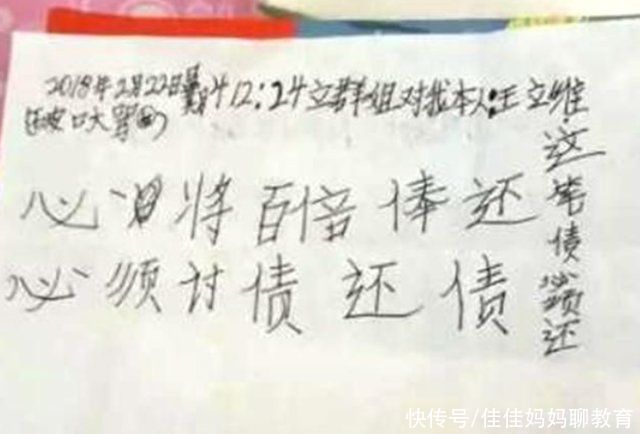 2018年2月22日星期4 12:24立群姐对我本人王立维
破口大骂
必将百倍俸还
必须讨债还债
这笔债必须还
快传号/佳佳妈妈聊教育